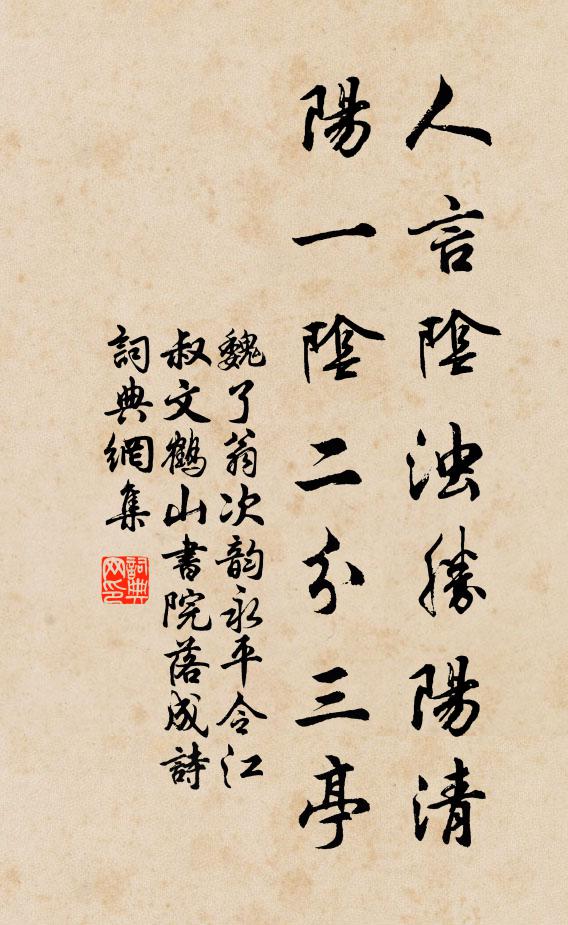 人言陰浊勝陽清
陽一陰二分三亭
魏了翁次韵永平令江
叔文鶴山書院落成詩
詞典網集
詞典
网印